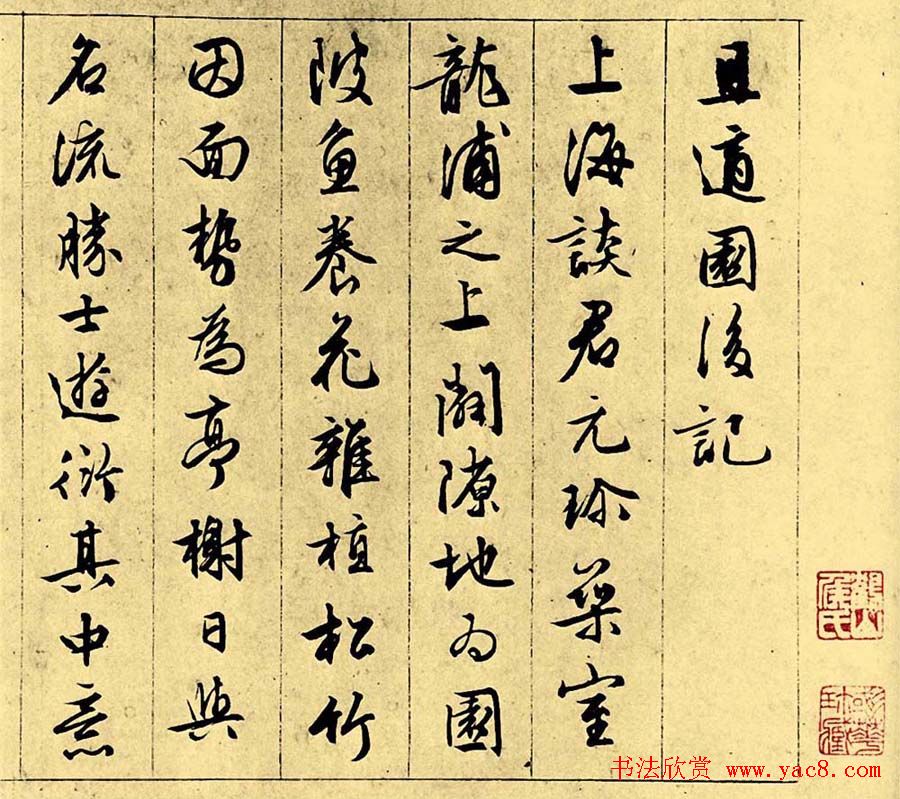 且適園後記
上海談君元珍築室
龍浦之上闢隙地為園
陂魚養花雜植松竹
因面勢為亭榭日與
名流勝士遊衍其中意
书法欣赏 www.yac8.com